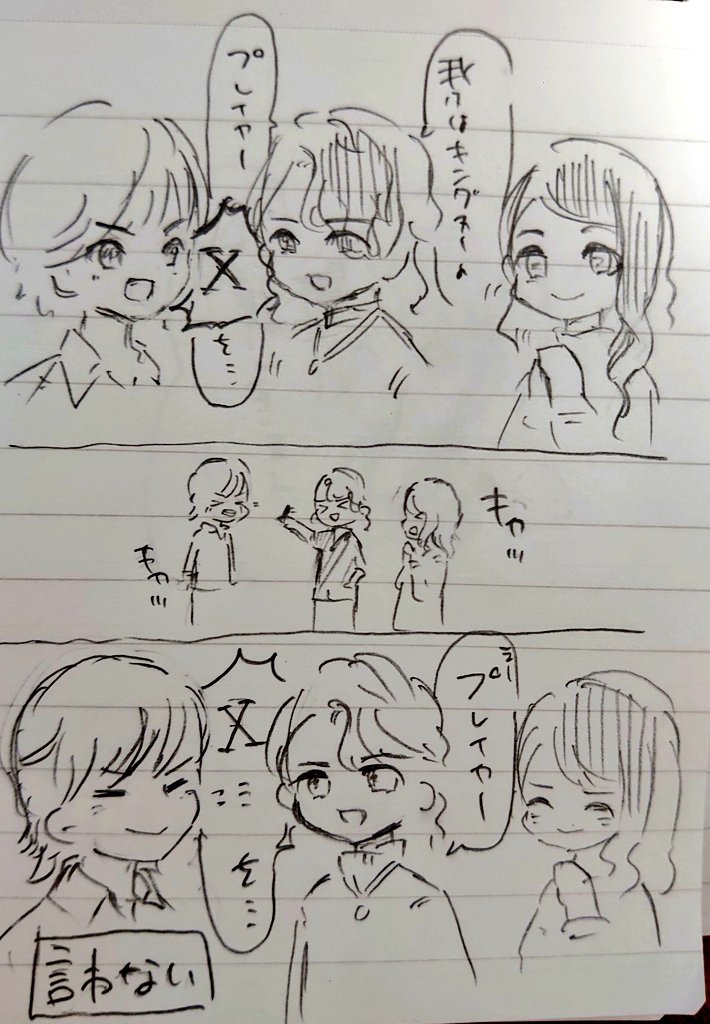 我々はキングオーよ
プレイヤー
X
を…
キャ…
キャ…
プレイヤー
X
を…
言わない